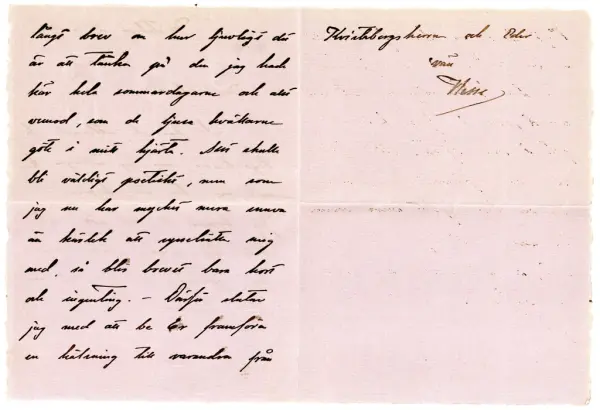 långt brev om hur ljuvligt det
är att tänka på den jag hade
kär hela sommardagarne och det
vemod, som de ljusa kvällarne
göto i mitt hjärta. Det skulle
bli väldigt poetiskt, men som
jag nu har mycket mera annat
än kärlek att sysselsätta mig
med, så blir brevet bara kort
och ingenting. – Därför slutar
jag med att be Er framföra
en hälsning till varandra från
och Eder
vän